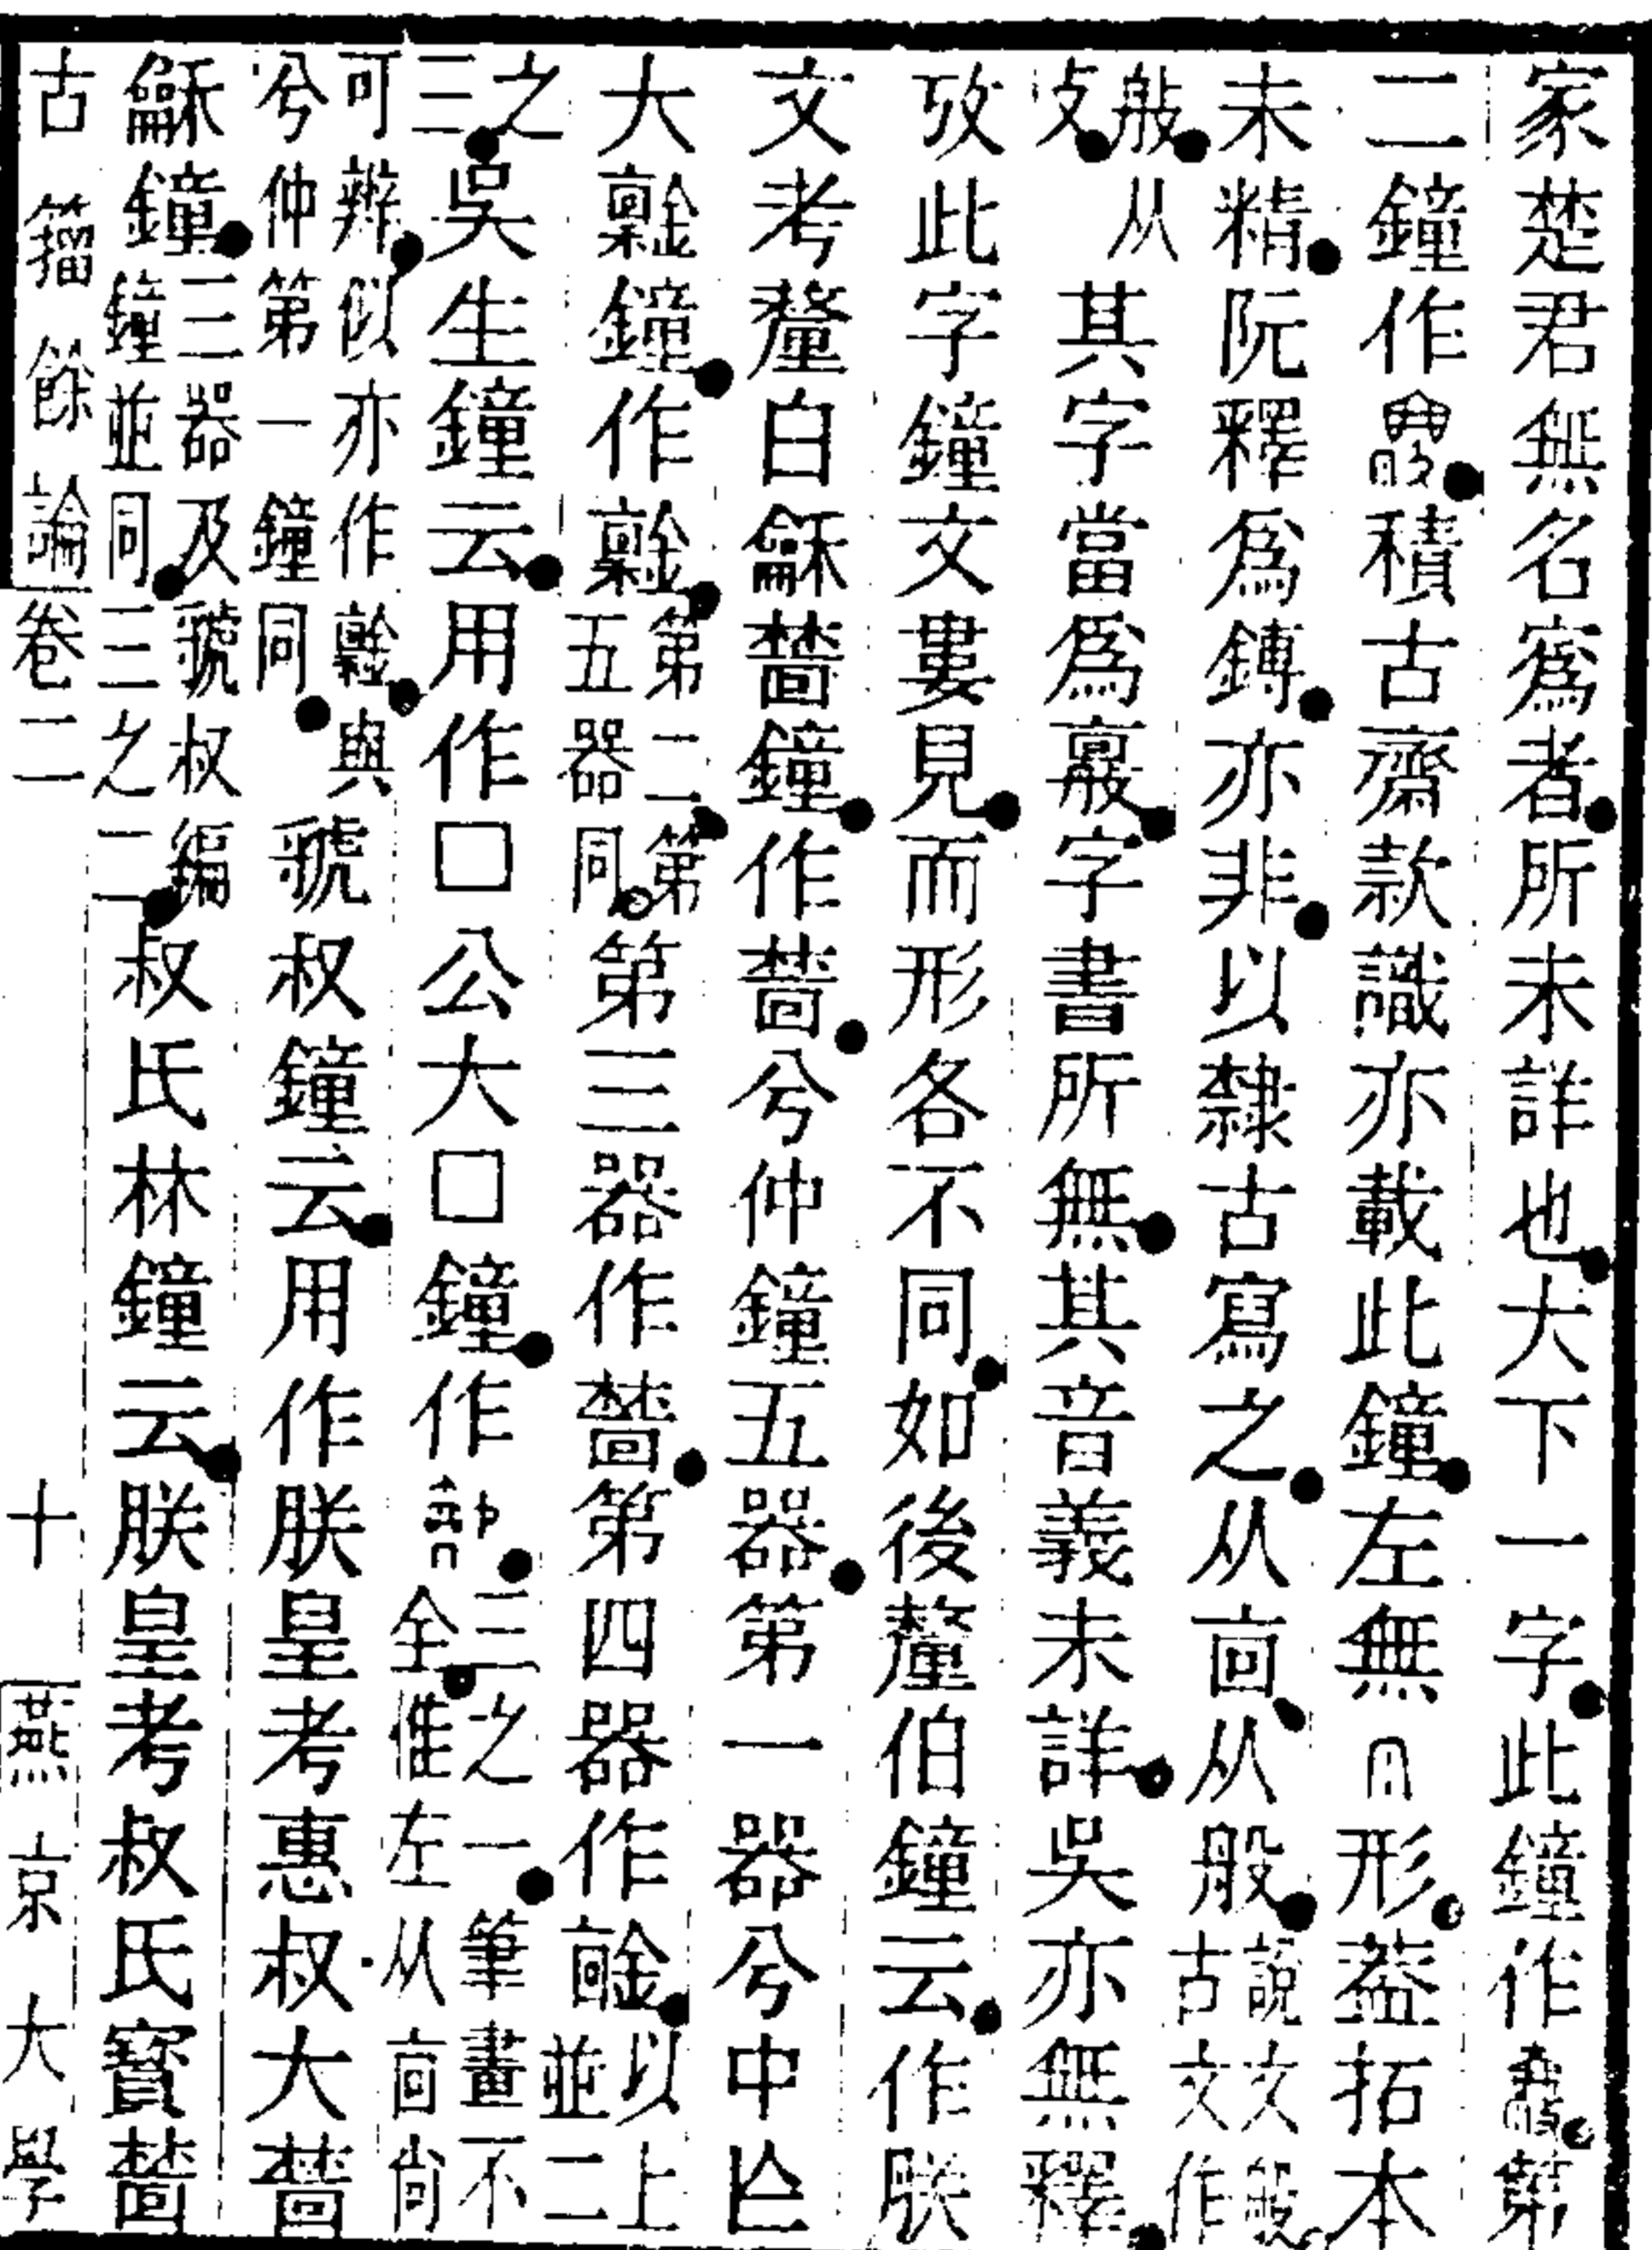 家楚君無名寪者所未詳也大下一字此鐘作第
二鐘作積古齋款識亦載此鐘左無形葢拓本
未精阮釋爲鎛亦非以隸古寫之从㐭从般說文般古文作
从攴其字當爲字書所無其音義未詳吳亦無釋
攷此字鐘文婁見而形各不同如後釐伯鐘云作朕
文考釐白龢鐘作兮仲鐘五器第一器兮中亾
大鐘作第二第五器同第三器作第四器作以上並二
之三吳生鐘云用作□公大□鐘作三之一筆畫不全惟左从㐭尚
可辨似亦作與兮仲第一鐘同虢叔鐘云用作朕皇考惠叔大
龢鐘三器及虢叔編鐘並同三之二叔氏林鐘云朕皇考叔氏寶
古籀餘論卷二 十 燕京大學